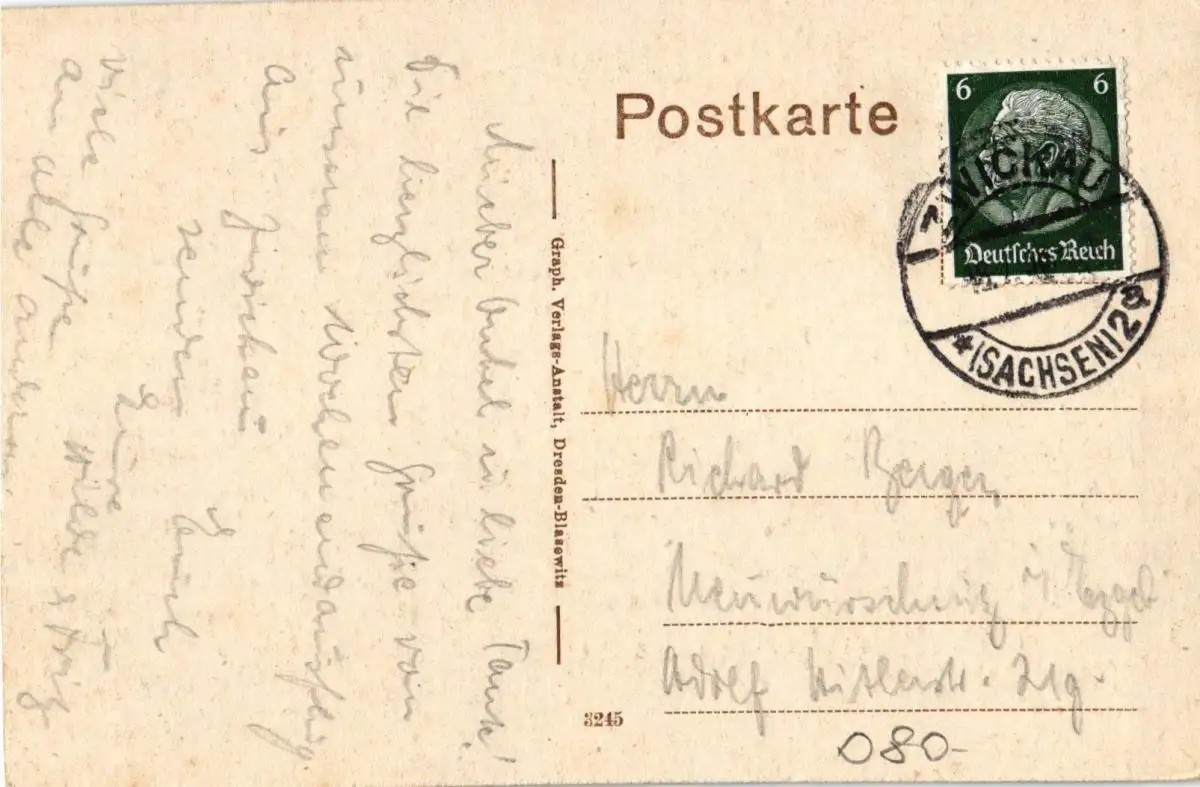 Postkarte
6 6
Deutsches Reich
ZWICKAU
* (SACHSEN) 2 a
Lieber Onkel u. liebe Tante!
Die herzlichsten Grüße von
unserem Wochenendausflug
aus Zwickau
senden Euch
Eure
Hilde & Fritz
Viele Grüße
an alle anderen
Graph. Verlags-Anstalt, Dresden-Blasewitz
Herrn
Richard Berger
Neuwürschnitz i/ Erzgeb
Adolf Hitlerstr.
3245
080-